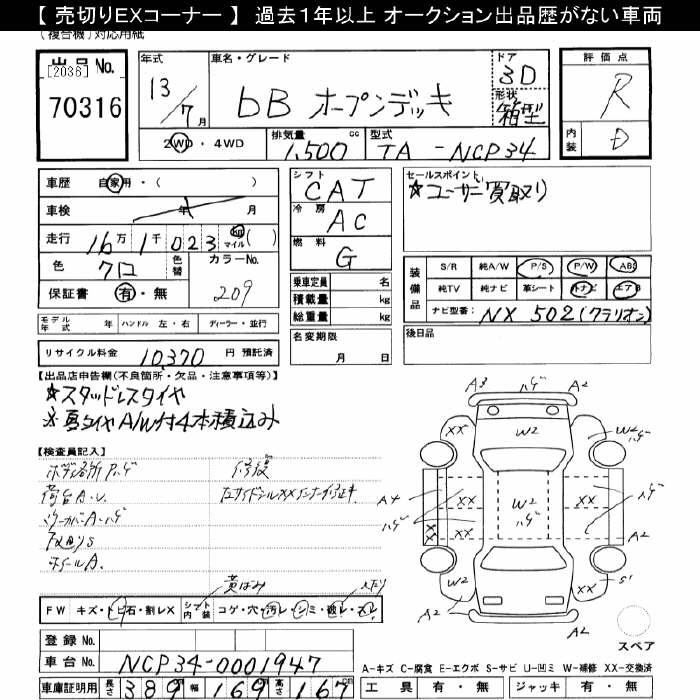 【 売切りEXコーナー 】 過去１年以上 オークション出品歴がない車両
(複合機)対応用紙
出品 No.
[2036]
70316
年式
13/7月
車名・グレード
bB オープンデッキ
ドア
3D
形状
箱型
評価点
R
内装
D
2WD・4WD
排気量
1,500 cc
型式
TA - NCP34
車歴 自家用・( )
車検 年 月
走行 16万 1千 023 km マイル ( )
色 クロ 色替 カラーNo. 209
保証書 有・無
シフト CAT
冷房 AC
燃料 G
乗車定員 名
積載量 kg
総重量 kg
セールスポイント
☆ユーザー買取り
装備品
S/R 純A/W P/S P/W ABS
純TV 純ナビ 革シート 外ナビ エアB
ナビ型番: NX 502 (クラリオン)
モデル年式 年 ハンドル 左・右 ディーラー・並行
名変期限 月 日
後日品
リサイクル料金 10,370 円 預託済
【出品店申告欄(不良箇所・欠品・注意事項等)】
☆スタッドレスタイヤ
※夏タイヤA/W付4本積込み
【検査員記入】
ボディ各所Aハゲ 修復
荷台A.U.
ホイールA.
A3 ハゲ A2
XX W2 W2 ハゲ
A4 XX XX W2 XX ハゲ
ハゲ XX XX ハゲ XX A2
W2 XX S1
A2 A2
スペア
黄ばみ
FW キズ・トビ石・割レX シート内装 コゲ・穴・汚レ・シミ・破レ・スレ
登録 No.
車台 No. NCP34-0001947
車庫証明用 長さ 389 cm 幅 169 cm 高さ 167 cm
A-キズ C-腐食 E-エクボ S-サビ U-凹ミ W-補修 XX-交換済
工具 有・無 ジャッキ 有・無